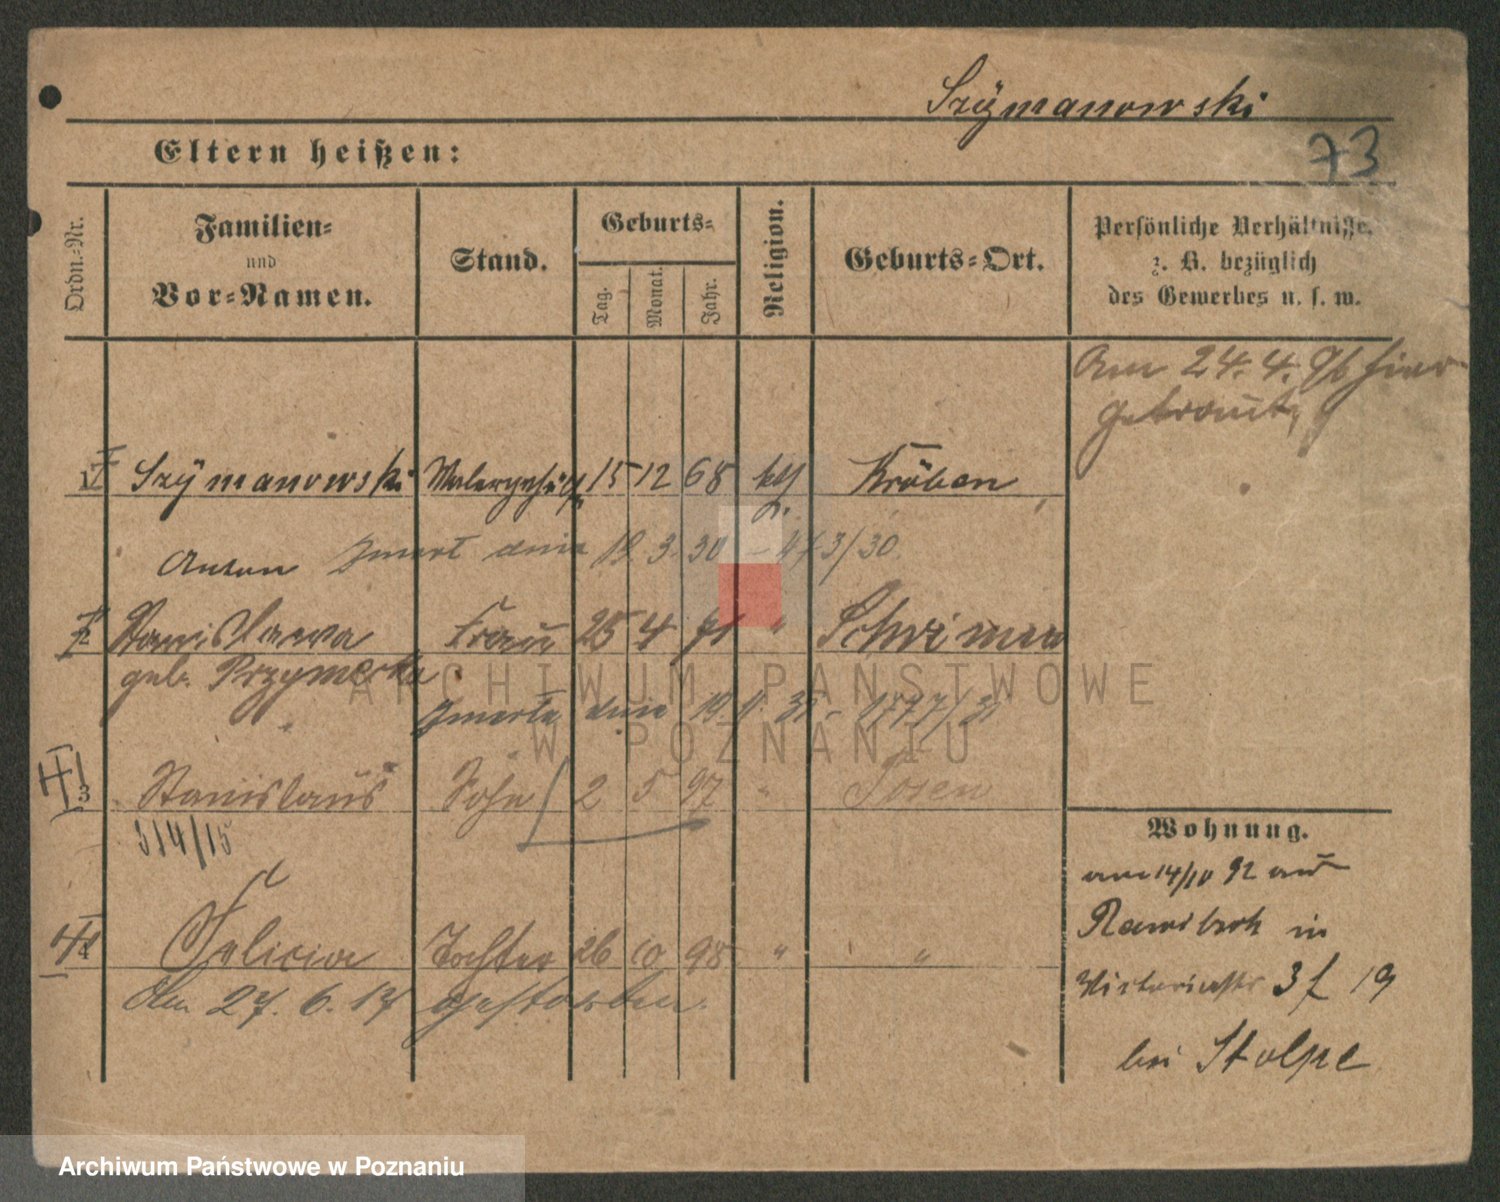 Szÿmanowski
73
Eltern heißen:
Ordn.-Nr.
Familien-
und
Vor-Namen.
Stand.
Geburts-
Tag.
Monat.
Jahr.
Religion.
Geburts-Ort.
Persönliche Verhältnisse,
z. B. bezüglich
des Gewerbes u. s. w.
Am 24. 4. 96 hier
getraut,
1 Szÿmanowski 15 12 68 kth. Kröben
Anton Zmarł dnia 19. 3. 30 - 473/30.
2 Stanislawa Frau 25 4 71 "
geb. Przymerka
Zmarła dnia 19 31
3 Stanislaus Sohn 2 5 97 " Posen
314/15
4 Felicia Tochter 26 10 98 " "
Am 27. 6. 17 gestorben.
Wohnung.
am 14/10 92 aus
Rawitsch in
Victoriastr 19
bei Stolpe
ARCHIWUM PAŃSTWOWE
W POZNANIU
Archiwum Państwowe w Poznaniu